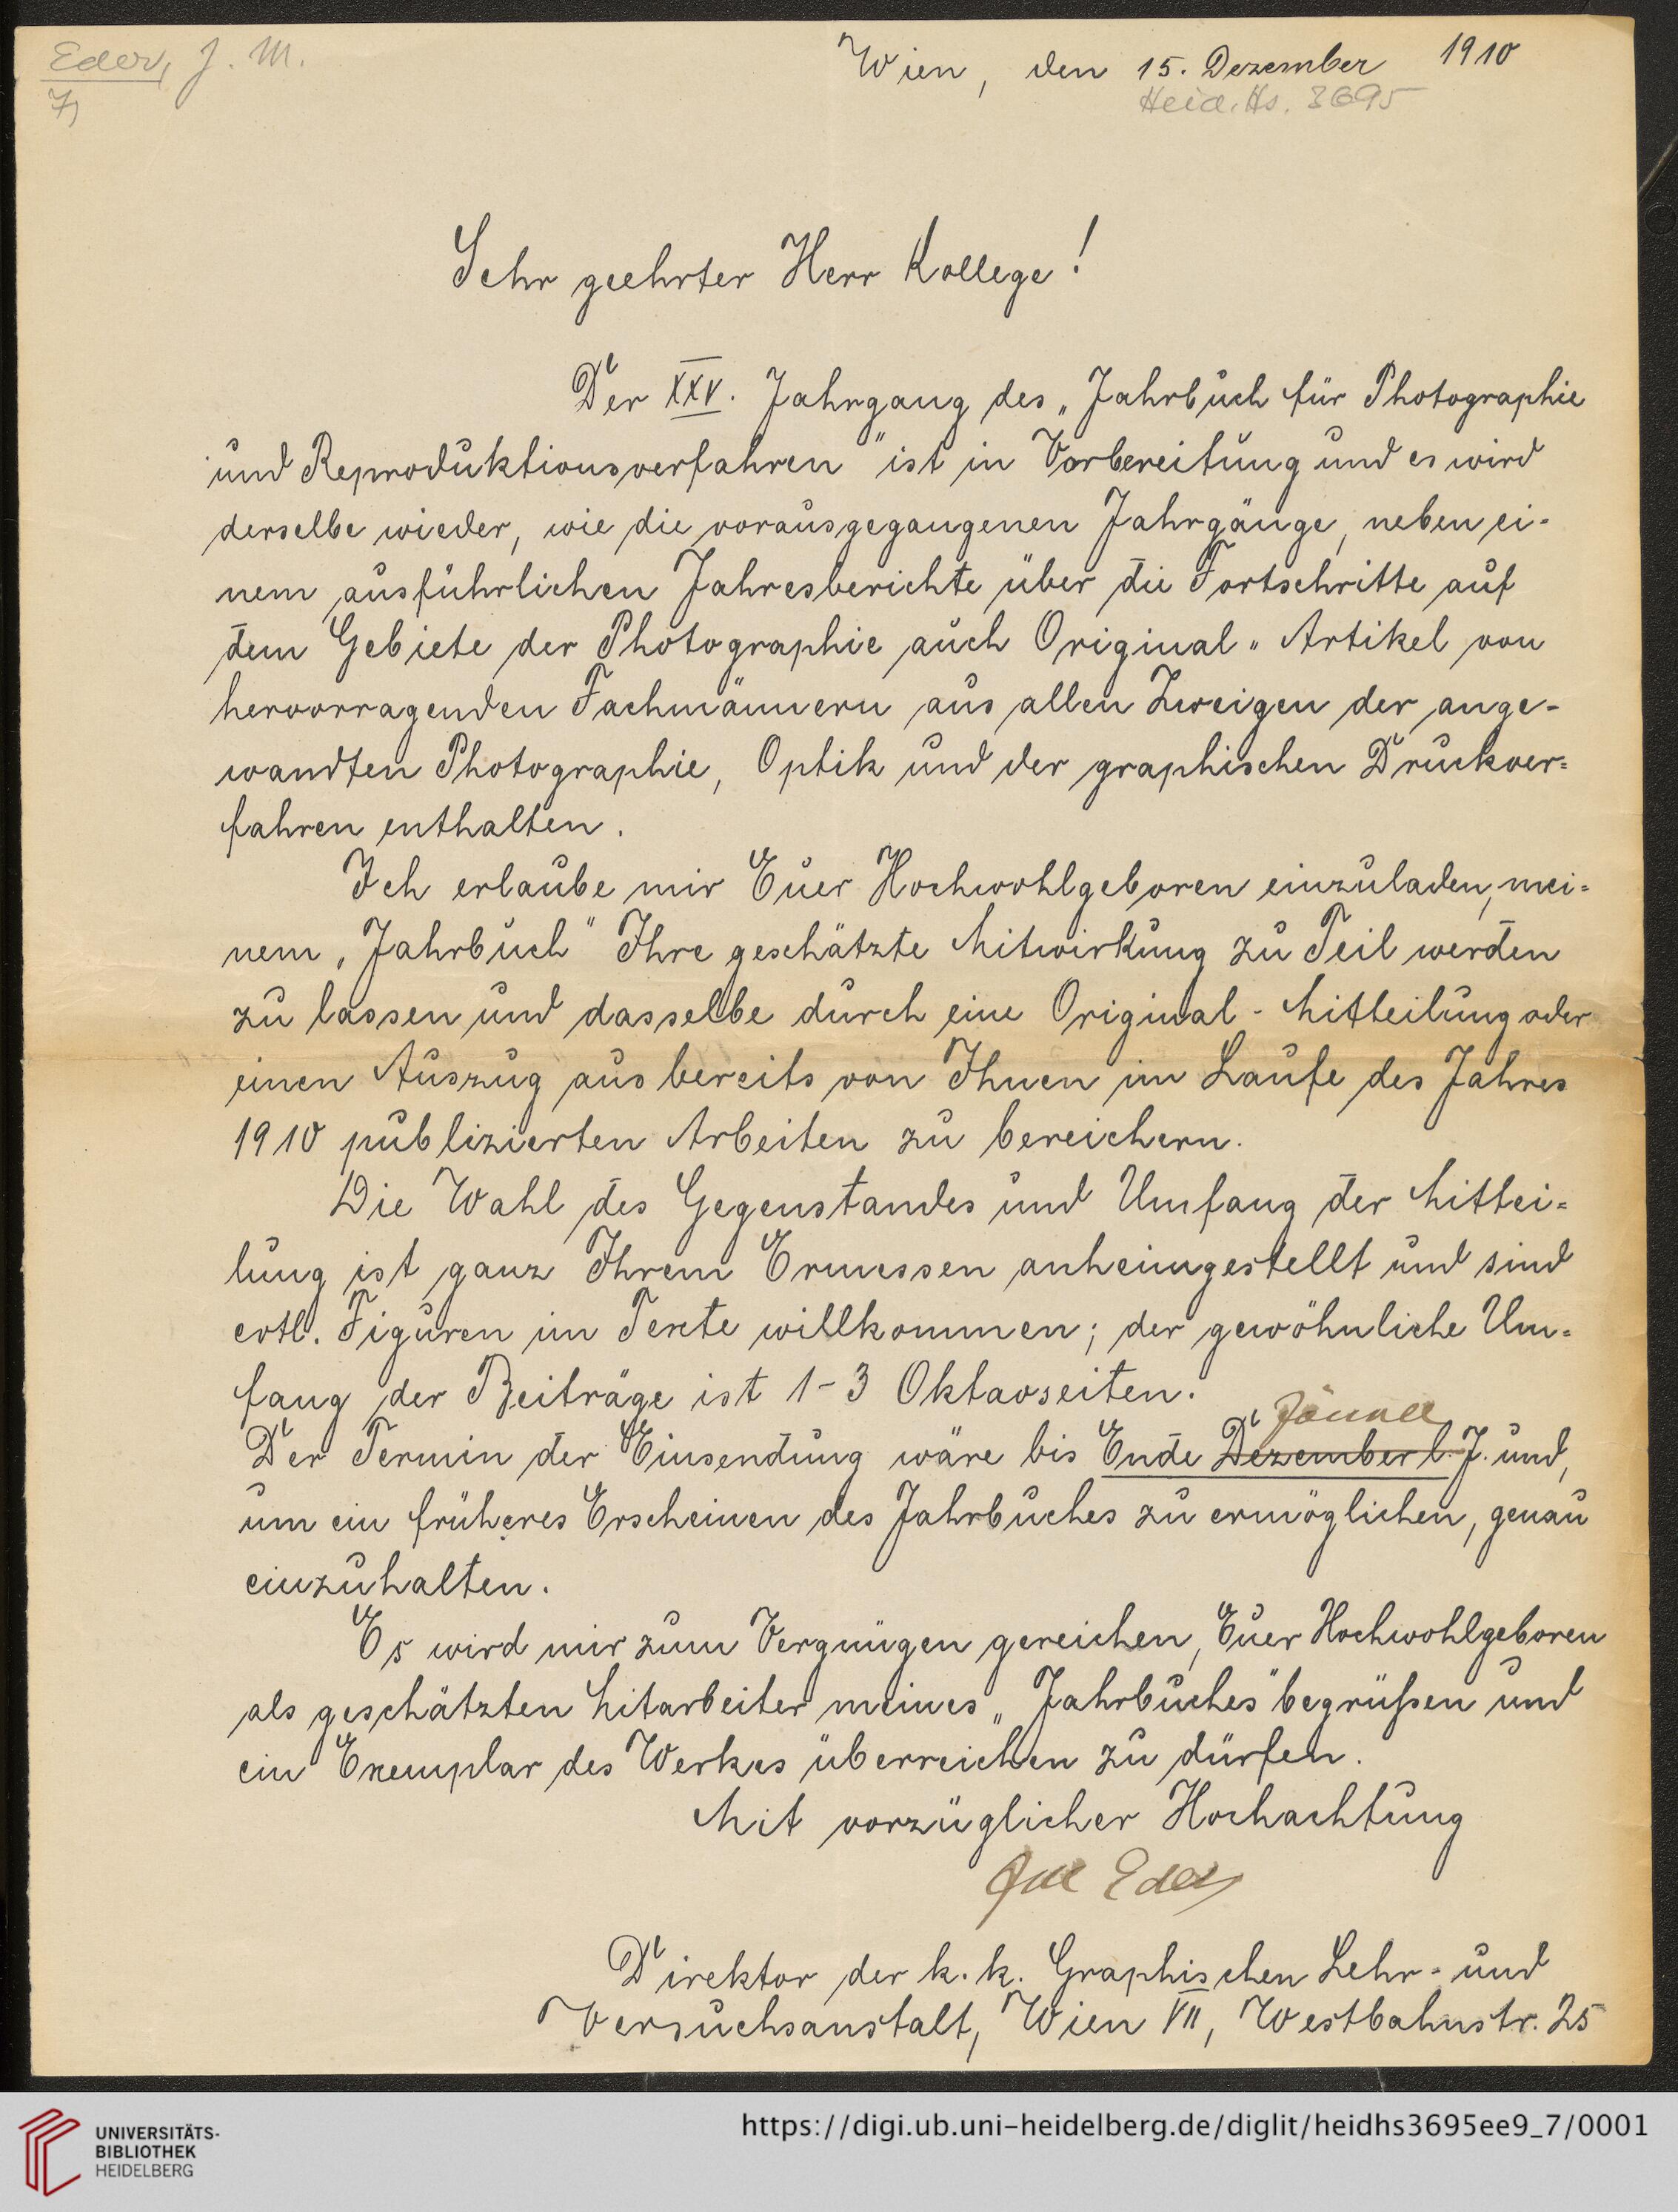 Eder, J. M.
7)
Wien, den 15. Dezember 1910
Heid. Hs. 3695
Sehr geehrter Herr Kollege!
Der XXV. Jahrgang des „Jahrbuch für Photographie
und Reproduktionsverfahren" ist in Vorbereitung und es wird
derselbe wieder, wie die vorausgegangenen Jahrgänge, neben ei-
nem ausführlichen Jahresberichte über die Fortschritte auf
dem Gebiete der Photographie auch Original-Artikel von
hervorragenden Fachmännern aus allen Zweigen der ange-
wandten Photographie, Optik und der graphischen Druckver-
fahren enthalten.
Ich erlaube mir Euer Hochwohlgeboren einzuladen, mei-
nem „Jahrbuch" Ihre geschätzte Mitwirkung zu Teil werden
zu lassen und dasselbe durch eine Original-Mitteilung oder
einen Auszug aus bereits von Ihnen im Laufe des Jahres
1910 publizierten Arbeiten zu bereichern.
Die Wahl des Gegenstandes und Umfang der Mittei-
lung ist ganz Ihrem Ermessen anheimgestellt und sind
evtl. Figuren im Texte willkommen; der gewöhnliche Um-
fang der Beiträge ist 1-3 Oktavseiten.
Jänner
Der Termin der Einsendung wäre bis Ende Dezember l. J. und,
um ein früheres Erscheinen des Jahrbuches zu ermöglichen, genau
einzuhalten.
Es wird mir zum Vergnügen gereichen, Euer Hochwohlgeboren
als geschätzten Mitarbeiter meines „Jahrbuches" begrüßen und
ein Exemplar des Werkes überreichen zu dürfen.
Mit vorzüglicher Hochachtung
Eder
Direktor der k. k. Graphischen Lehr- und
Versuchsanstalt, Wien VII, Westbahnstr. 25
UNIVERSITÄTS-
BIBLIOTHEK
HEIDELBERG
https://digi.ub.uni-heidelberg.de/diglit/heidhs3695ee9_7/0001